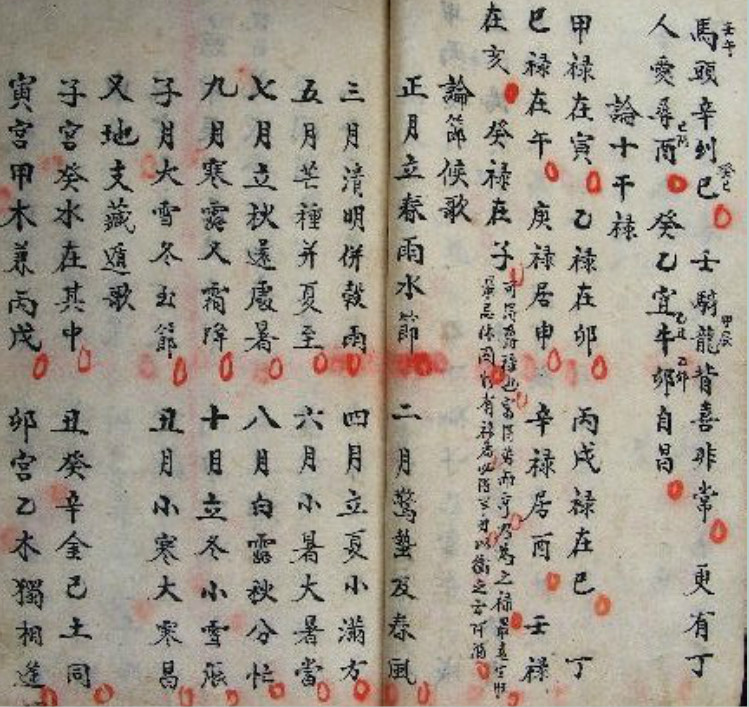 馬頭辛到巳 壬騎龍背喜非常 更有丁
人愛尋酉 癸乙宜牛卯自昌
論十干禄
甲禄在寅 乙禄在卯 丙戊禄在巳 丁
巳禄在午 庚禄居申 辛禄居酉 壬禄
在亥 癸禄在子
論節候歌
正月立春雨水節 二月驚蟄及春風
三月清明併穀雨 四月立夏小滿方
五月芒種并夏至 六月小暑大暑當
七月立秋還處暑 八月白露秋分忙
九月寒露又霜降 十月立冬小雪張
子月大雪冬至節 丑月小寒大寒昌
又地支藏遁歌
子宮癸水在其中 丑癸辛金己土同
寅宮甲木兼丙戊 卯宮乙木獨相逢